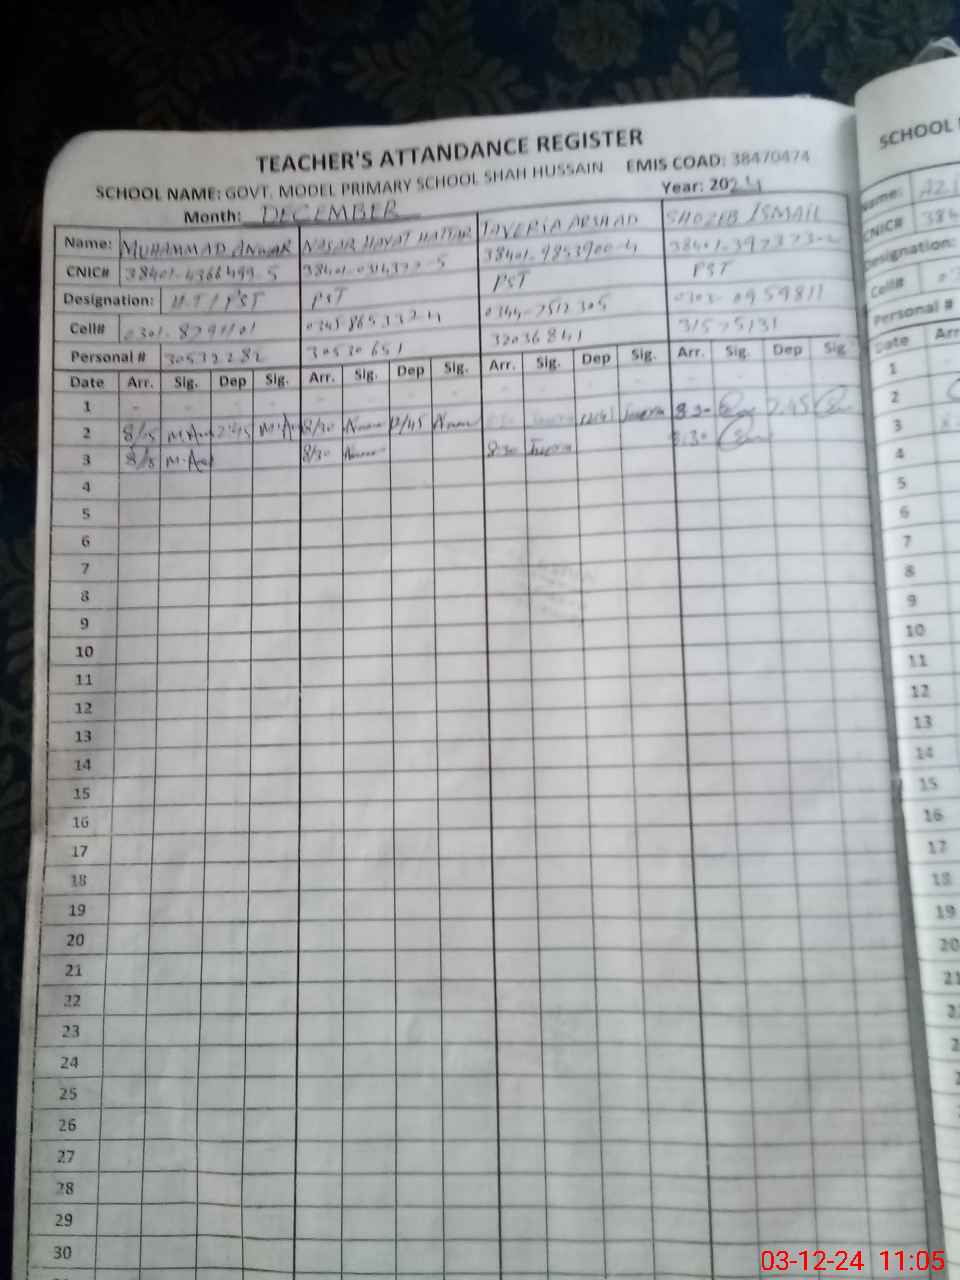 TEACHER'S ATTANDANCE REGISTER
SCHOOL NAME: GOVT. MODEL PRIMARY SCHOOL SHAH HUSSAIN EMIS COAD: 38470474
Month: DECEMBER Year: 2024
Name: MUHAMMAD ANWAR NASAR HAYAT HATTAR TAVERIA ARSHAD SHOZEB ISMAIL
CNIC# 38401-4366499-5 38401-9853900-4
Designation: PST PST PST
Cell# 0345 8653324 0344-7512305 0303-0959811
Personal # 30532282 30530651 32036841 31575131
Date Arr. Sig. Dep Sig. Arr. Sig. Dep Sig. Arr. Sig. Dep Sig. Arr. Sig. Dep Sig
1
2 8/15 2:45 8/30 2.45
3 8/30 8:30 8:30
4
5
6
7
8
9
10
11
12
13
14
15
16
17
18
19
20
21
22
23
24
25
26
27
28
29
30
SCHOOL
Name: AZI
CNIC# 384
Designation:
Cell# 03
Personal #
Date Arr
1
2
3
4
5
6
7
8
9
10
11
12
13
14
15
16
17
18
19
20
21
03-12-24 11:05